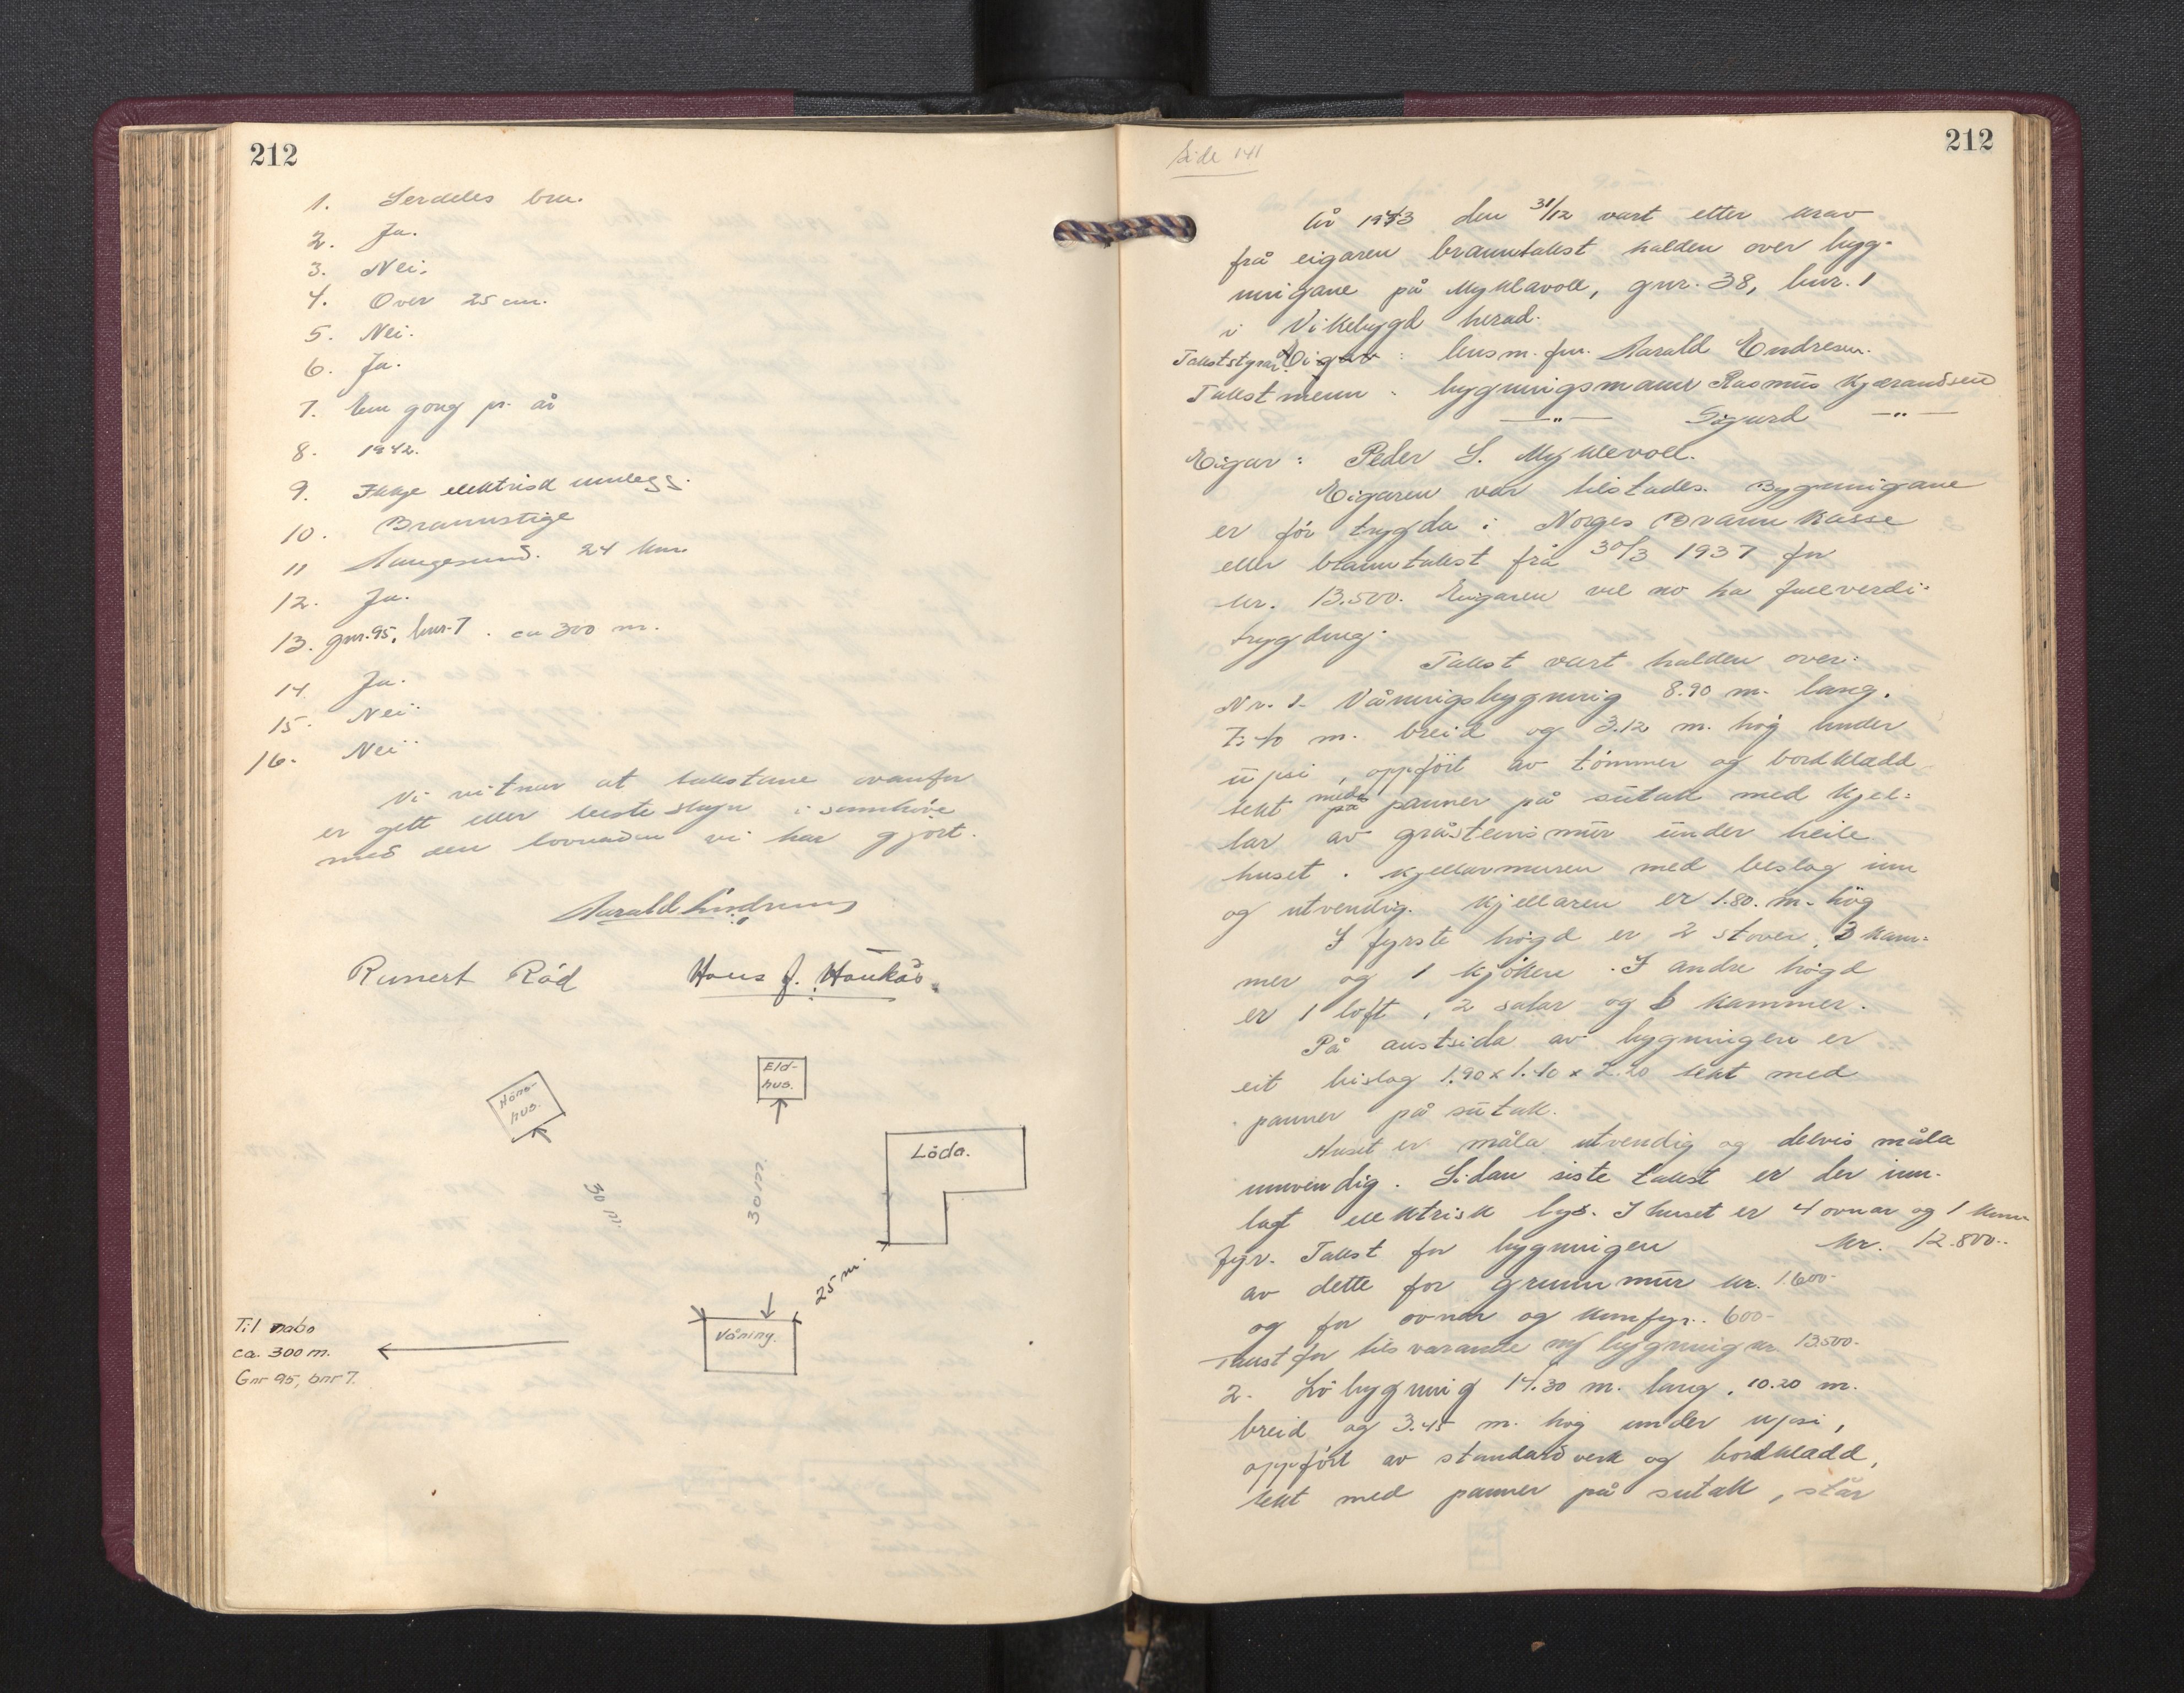 212
1. Serdeles bra.
2. Ja.
3. Nei.
4. Over 25 cm.
5. Nei.
6. Ja.
7. Ein gong pr. år
8. 1942.
9. Ikkje elektrisk innlegg.
10. Brannstige
11 Haugesund. 24 km.
12. Ja.
13. gnr. 95, bnr. 7. ca 300 m.
14. Ja.
15. Nei
16. Nei
Vi vitnar at takstane ovanfor
er gjett etter beste skjøn i samhøve
med den lovnaden vi har gjort.
Harald Endresen
Runert Röd Hans J. Haukås.
Höns-
hus.
Eld-
hus.
Löda.
30 m.
30 m.
25 m.
Våning.
Til nabo
ca. 300 m.
Gnr 95, bnr 7.
Side 141
212
År 1943 den 31/12 vart etter krav
frå eigaren branntakst halden over byg-
nigane på Myklavoll, gnr. 38, bnr. 1
i Vikebygd herad.
Takststyrar: husm. fm. Harald Endresen.
Takstmenn: bygningsmann Rasmus Kjærandsen
—"— Sigurd —"—
Eigar: Peder S. Myklevoll.
Eigaren var tilstades. Bygnigane
er för trygda i Norges Brannkasse
etter branntakst frå 30/3 1937 for
kr. 13.500. Eigaren vil no ha fullverdi-
trygding.
Takst vart halden over:
Nr. 1. Våningsbygning 8.90 m. lang.
7.40 m. breid og 3.12 m. høg under
upsi, oppfört av tömmer og bordkledd
tekt med panner på sutak med kjel-
lar av gråsteinsmur under heile
huset. Kjellarmuren med beslag inn
og utvendig. Kjellaren er 1.80. m. hög
I fyrste högd er 2 stover, 3 kam-
mer og 1 kjöken. I andre högd
er 1 loft, 2 salar og 6 kammer.
På austsida av bygnigen er
eit bislag 1.90 x 1.40 x 2.20 tekt med
panner på sutak.
Huset er måla utvendig og delvis måla
innvendig. Sidan siste takst er der inn-
lagt elektrisk lys. I huset er 4 ovnar og 1 kom-
fyr. Takst for bygnigen kr. 12.800.-
av dette for grunnmur kr. 1.600-
og for ovnar og komfyr. 600-
Takst for tilsvarande ny bygning kr. 13500.-
2. Löbygnig 14.30 m. lang, 10.20 m.
breid og 3.45 m. høg under upsi,
oppfört av standardverk og bordkledd,
tekt med panner på sutak, står